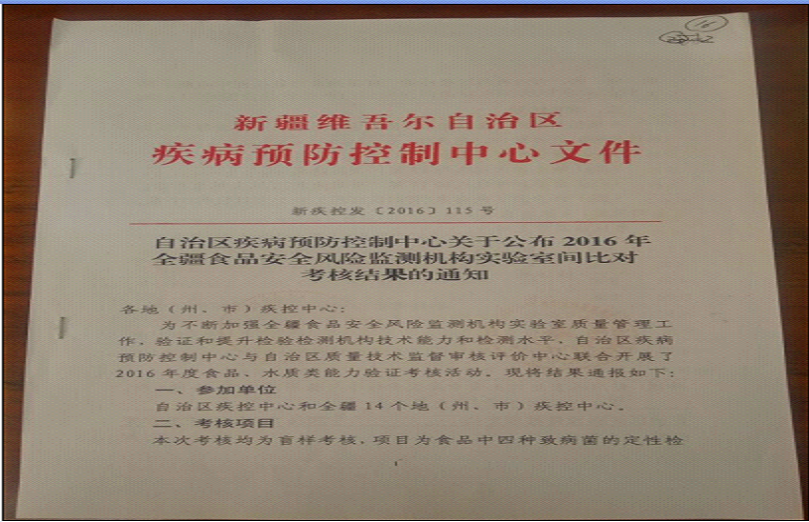 新疆维吾尔自治区
疾病预防控制中心文件
新疾控发〔2016〕115 号
自治区疾病预防控制中心关于公布 2016 年
全疆食品安全风险监测机构实验室间比对
考核结果的通知
各地（州、市）疾控中心：
为不断加强全疆食品安全风险监测机构实验室质量管理工
作，验证和提升检验检测机构技术能力和检测水平，自治区疾病
预防控制中心与自治区质量技术监督审核评价中心联合开展了
2016 年度食品、水质类能力验证考核活动。现将结果通报如下：
一、参加单位
自治区疾控中心和全疆 14 个地（州、市）疾控中心。
二、考核项目
本次考核均为盲样考核，项目为食品中四种致病菌的定性检
1